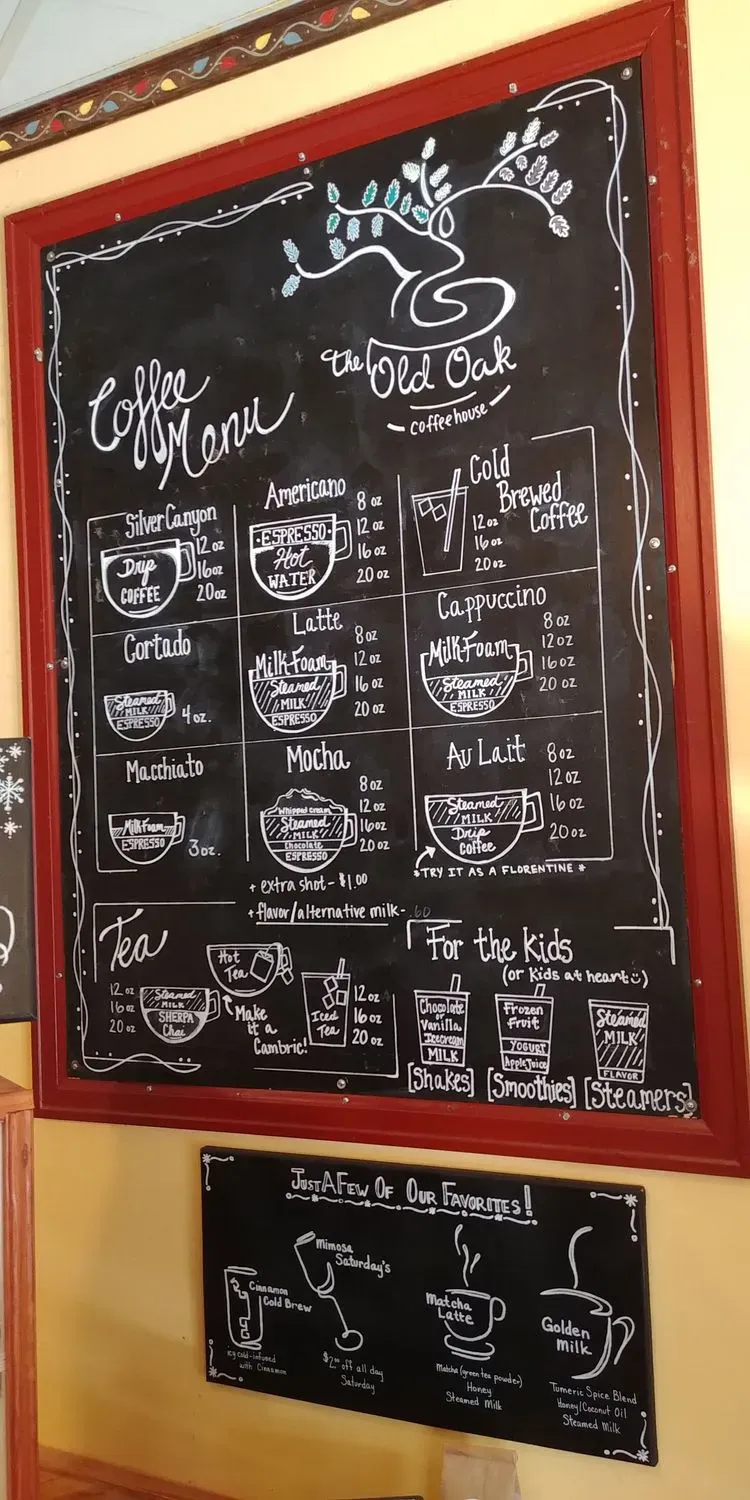 The Old Oak
coffeehouse
Coffee
Menu
Silver Canyon
Drip
COFFEE
12 oz
16 oz
20 oz
Americano
·ESPRESSO·
Hot
WATER
8 oz
12 oz
16 oz
20 oz
Cold
Brewed
Coffee
12 oz
16 oz
20 oz
Cortado
Steamed
MILK
ESPRESSO
4 oz.
Latte
Milk Foam
Steamed
MILK
ESPRESSO
8 oz
12 oz
16 oz
20 oz
Cappuccino
Milk Foam
Steamed
MILK
ESPRESSO
8 oz
12 oz
16 oz
20 oz
Macchiato
Milk Foam
ESPRESSO
3 oz.
Mocha
Whipped cream
Steamed
MILK
Chocolate
ESPRESSO
8 oz
12 oz
16 oz
20 oz
Au Lait
Steamed
MILK
Drip
Coffee
8 oz
12 oz
16 oz
20 oz
*TRY IT AS A FLORENTINE *
+ extra shot - $1.00
+ flavor/alternative milk - .60
Tea
12 oz
16 oz
20 oz
Steamed
MILK
SHERPA
Chai
Hot
Tea
Make
it a
Cambric!
Iced
Tea
12 oz
16 oz
20 oz
For the kids
(or kids at heart)
Chocolate
or
Vanilla
Icecream
MILK
[Shakes]
Frozen
Fruit
YOGURT
Apple Juice
[Smoothies]
Steamed
MILK
FLAVOR
[Steamers]
JUST A FEW OF OUR FAVORITES!
Cinnamon
Cold Brew
icy cold-infused
with Cinnamon
Mimosa
Saturday's
$2.00 off all day
Saturday
Matcha
Latte
Matcha (green tea powder)
Honey
Steamed Milk
Golden
Milk
Tumeric Spice Blend
Honey/Coconut Oil
Steamed Milk